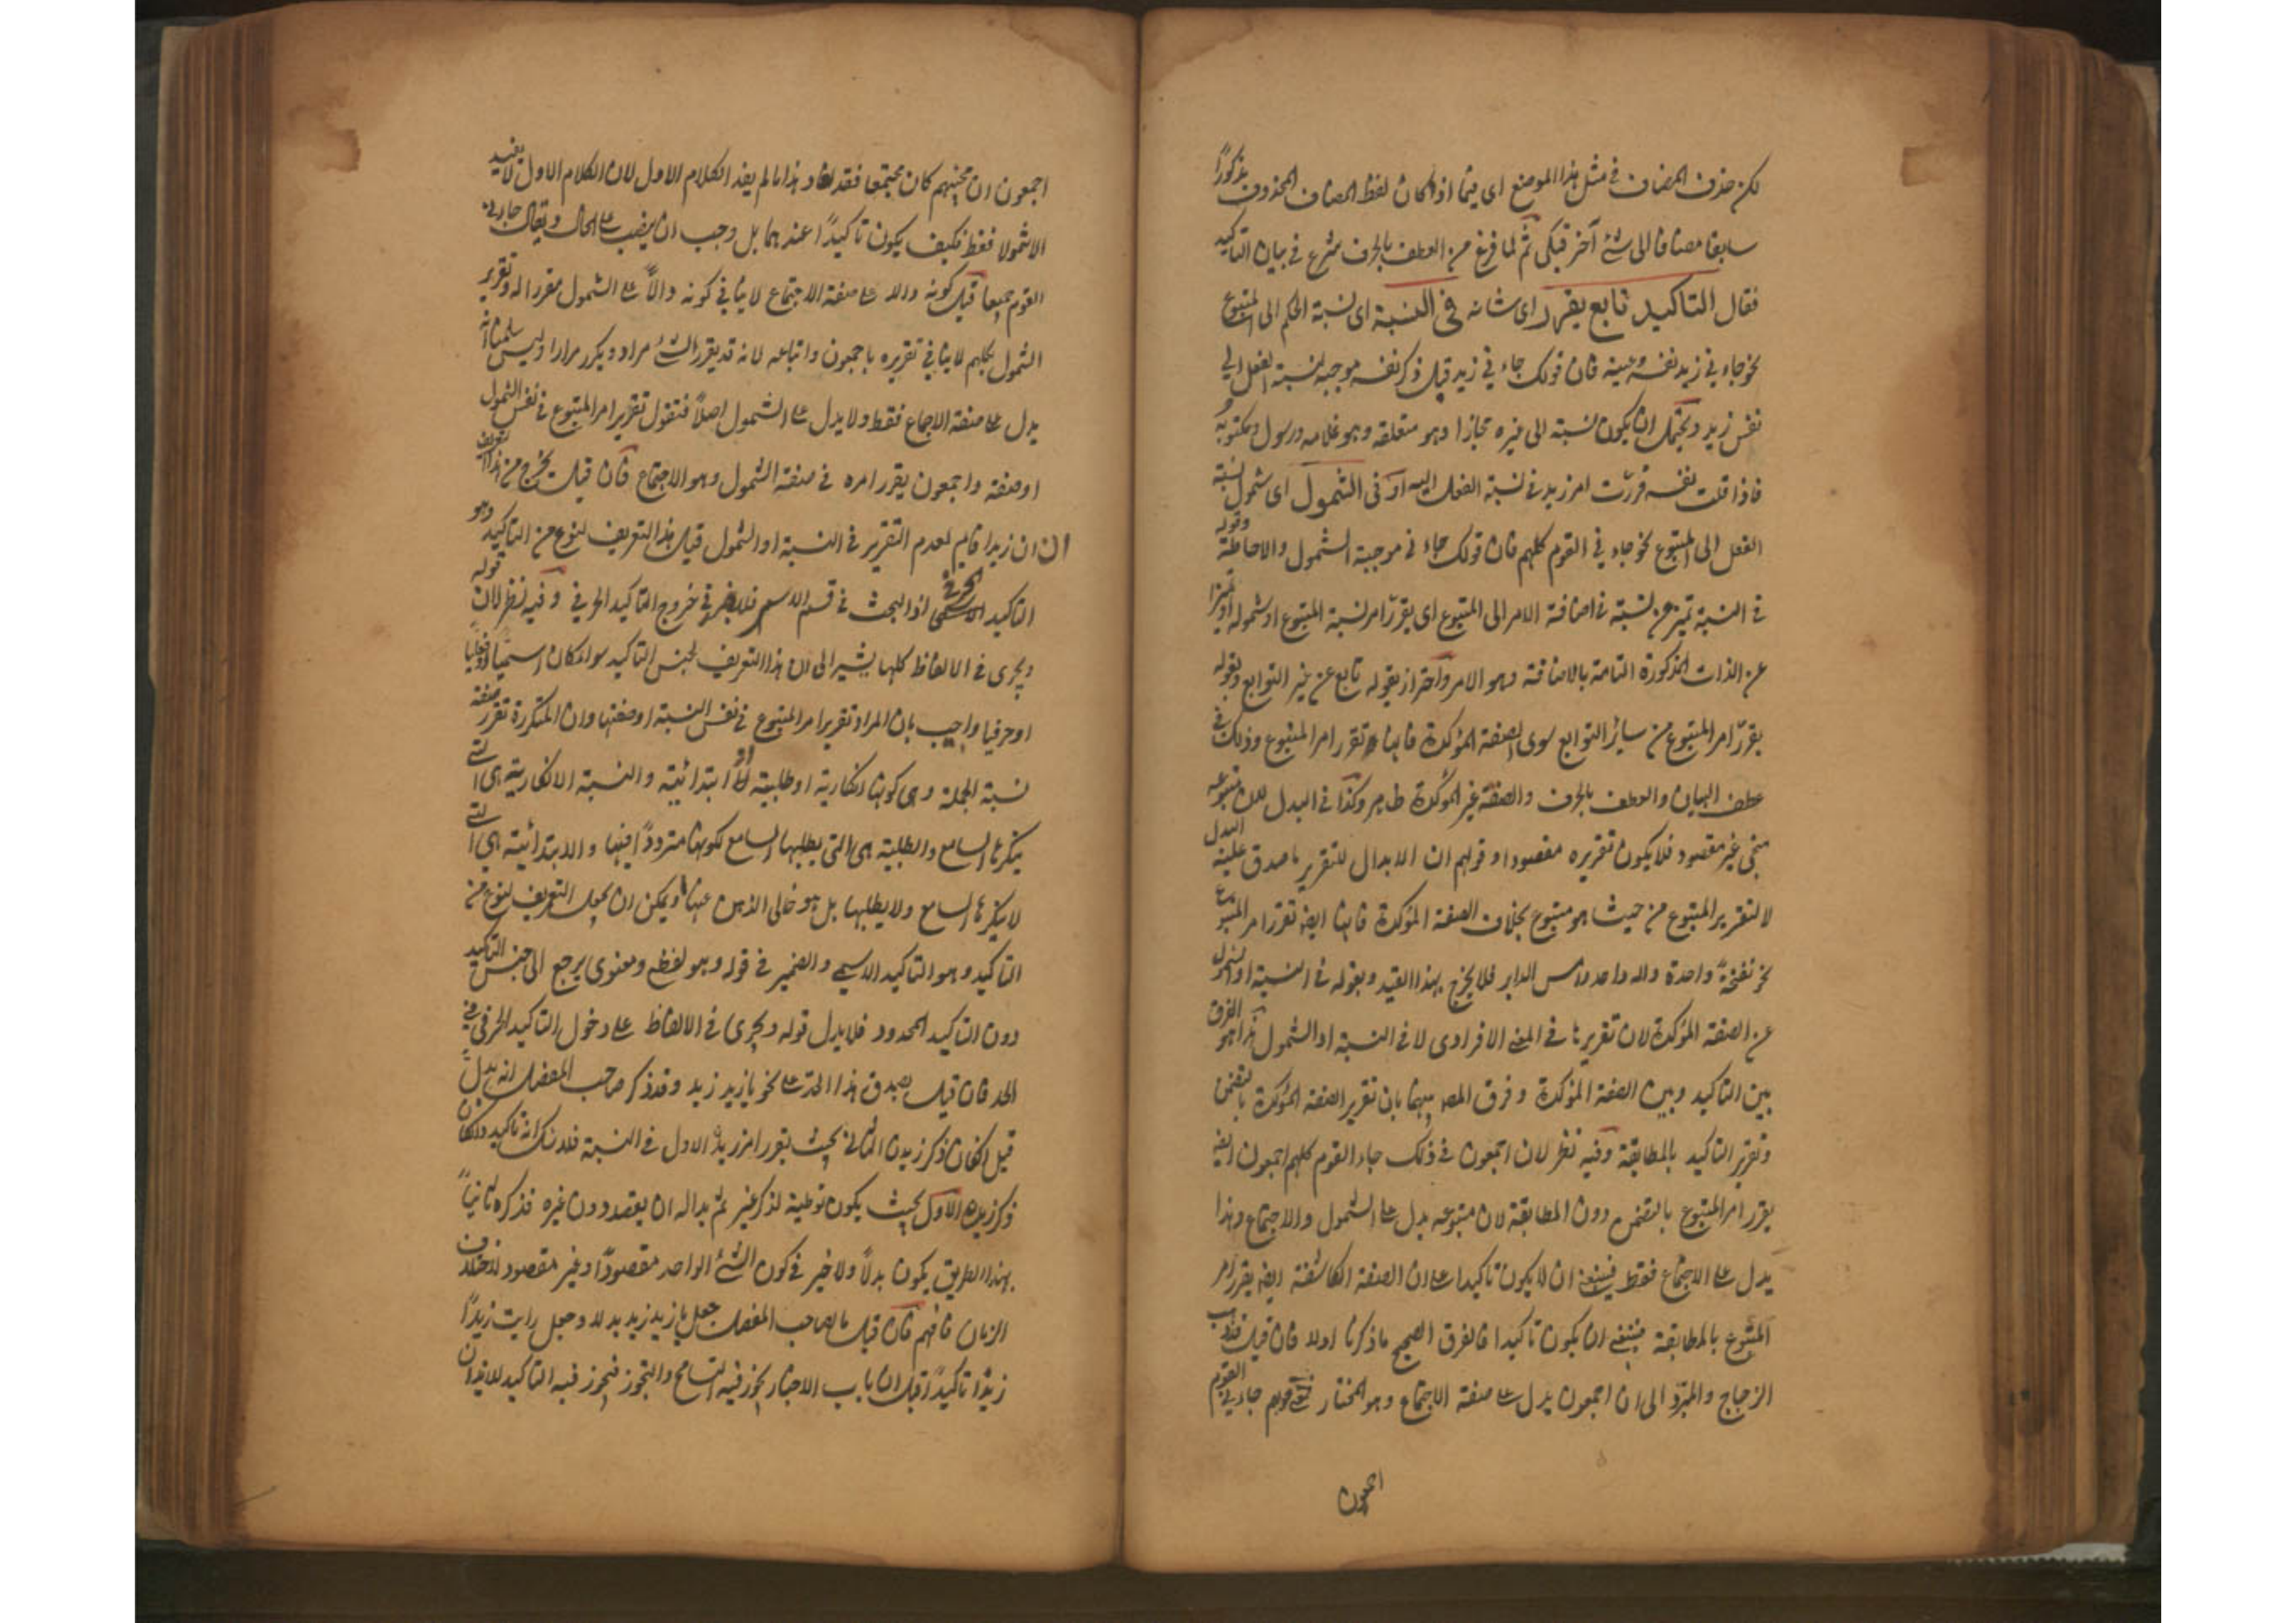 لكن حذف المضاف في مثل هذا الموضع اى فيما اذا كان لفظ المضاف المحذوف مذكورًا
سابقا مضافا الى شئ آخر قبلى ثم لما فرغ من العطف بالحرف شرع في بيان التاكيد
فقال التاكيد تابع يقرر اى شانه فى النسبة اى نسبة الحكم الى المتبوع
نحو جاء نى زيد نفسه وعينه فان قولك جاء نى زيد قبل ذكر نفسه موجبه نسبة الفعل الى
نفس زيد ويحتمل ان يكون نسبته الى غيره مجازا وهو متعلقه وهو غلامه ورسوله ومكتوبه
فاذا قلت نفسه قررت امر زيد في نسبة الفعل اليه او فى الشمول اى شمول نسبة
الفعل الى المتبوع نحو جاء نى القوم كلهم فان قولك جاء نى موجبه الشمول والاحاطة وقوله
في النسبة تميز عن نسبة في اضافة الامر الى المتبوع اى يقرر امر نسبة المتبوع او شموله او تميزا
عن الذات المذكورة التامة بالاضافة وهو الامر واحترز بقوله تابع عن غير التوابع وبقوله
يقرر امر المتبوع من سائر التوابع سوى الصفة المؤكدة فانها تقرر امر المتبوع وذلك فى
عطف البيان والعطف بالحرف والصفة غير المؤكدة ظاهر وكذا في البدل لان متبوعه
منحى غير مقصود فلا يكون تقريره مقصودا وقولهم ان الابدال للتقرير ما صدق عليه البدل
لا لتقرير المتبوع من حيث هو متبوع بخلاف الصفة المؤكدة فانها ايضا تقرر امر المتبوع
نحو نفخة واحدة واله واحد وامس الدابر فلا يخرج بهذا القيد وبقوله في النسبة او الشمول
عن الصفة المؤكدة لان تقريرها في المعنى الافرادى لا في النسبة او الشمول هذا هو الفرق
بين التاكيد وبين الصفة المؤكدة وفرق المص بينهما بان تقرير الصفة المؤكدة بالتضمن
وتقرير التاكيد بالمطابقة وفيه نظر لان اجمعون في قولك جاء القوم كلهم اجمعون ايضا
يقرر امر المتبوع بالتضمن دون المطابقة لان متبوعه يدل على الشمول والاجتماع وهذا
يدل على الاجتماع فقط فينبغى ان لا يكون تاكيدا على ان الصفة الكاشفة ايضا يقرر امر
المتبوع بالمطابقة فينبغى ان يكون تاكيدا فالفرق الصحيح ما ذكرنا اولا فان قيل فذهب
الزجاج والمبرد الى ان اجمعون يدل على صفة الاجتماع وهو المختار قولهم جاء نى القوم
اجمعون
اجمعون ان مجيئهم كان مجتمعا فقد افاد هذا ما لم يفد الكلام الاول لان الكلام الاول لا يفيد
الا شمولا فقط فكيف يكون تاكيدًا عندهما بل وجب ان ينصب على الحال ويقال جاء نى
القوم جميعا قيل كونه دالا على صفة الاجتماع لا ينافى كونه دالًا على الشمول مقررا له وتقرير
الشمول بكلهم لا ينافى تقريره باجمعون واتباعه لانه قد يقرر الشئ مرارا ويكرر مرارا ولئن سلمنا انه
يدل على صفة الاجماع فقط ولا يدل على الشمول اصلًا فنقول تقرير امر المتبوع في نفس الشمول
او صفته واجمعون يقرر امره في صفة الشمول وهو الاجتماع فان قيل يخرج من هذا التعريف
ان ان زيدا قايم لعدم التقرير في النسبة او الشمول قيل هذا التعريف لنوع من التاكيد وهو
التاكيد الاسمى اذ البحث في قسم الاسم فلا يضر في خروج التاكيد الحرفى وفيه نظر لان قوله
ويجرى فى الالفاظ كلها يشير الى ان هذا التعريف لجنس التاكيد سواء كان اسميا او فعليا
او حرفيا واجيب بان المراد تقرير امر المتبوع في نفس النسبة او صفتها وان المتكررة تقرر صفة
نسبة الجملة وهى كونها انكارية او طلبية او ابتدائية والنسبة الانكارية هى التى
ينكرها السامع والطلبية هى التى يطلبها السامع لكونها مترددًا فيها والابتدائية هى التى
لا ينكرها السامع ولا يطلبها بل هو خالى الذهن عنها ويمكن ان يكون التعريف لنوع من
التاكيد وهو التاكيد الاسمى والضمير في قوله وهو لفظى ومعنوى يرجع الى جنس التاكيد
دون التاكيد المحدود فلا يدل قوله ويجرى في الالفاظ على دخول التاكيد الحرفى في
الحد فان قيل يصدق هذا الحد على نحو يا زيد زيد وقد ذكر صاحب المفصل انه بدل
قيل ان كان ذكر زيد الثانى بحيث يقرر امر زيد الاول في النسبة فلا شك انه تاكيد وان كان
ذكر زيد الاول بحيث يكون توطية لذكر غيره ثم بدا له ان يقصد دون غيره فذكره ثانياً
بهذا الطريق يكون بدلًا ولا ضير في كون الشئ الواحد مقصودًا وغير مقصود لاختلاف
الزمان فافهم فان قيل ما لصاحب المفصل جعل يا زيد زيد بدلا وجعل رايت زيدًا
زيدًا تاكيدًا قيل ان باب الاخبار يجوز فيه التسامح والتجوز فيجوز فيه التاكيد للايذان